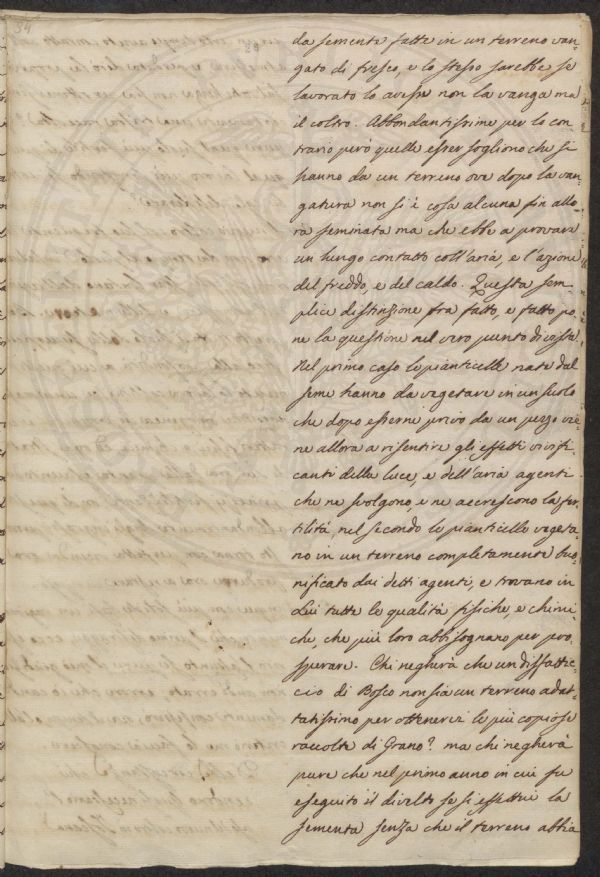 34
da sementa fatte in un terreno van-
gato di fresco, e lo stesso sarebbe se
lavorato lo avesse non la vanga ma
il coltro. Abbondantissime per lo con
trario però quelle esser sogliono che si
hanno da un terreno ove dopo la van-
gatura non si è cosa alcuna fin allo-
ra seminata ma che ebbe a provare
un lungo contatto coll'aria, e l'azione
del freddo, e del caldo. Questa sem-
plice distinzione fra fatto, e fatto po-
ne la questione nel vero punto di vista.
Nel primo caso le pianticelle nate dal
seme hanno da vegetare in un suolo
che dopo esserne privo da un pezzo vie-
ne allora a risentire gli effetti vivifi-
canti della luce, e dell'aria agenti
che ne svolgono, e ne accrescono la fer-
tilità, nel secondo le pianticelle vegeta-
no in un terreno completamente buo-
nificato dai detti agenti, e trovano in
Lui tutte le qualità fisiche, e chimi-
che, che più loro abbisognano per pro-
sperare. Chi negherà che un disfattic-
cio di Bosco non sia un terreno adat-
tatissimo per ottenervi le più copiose
raccolte di Grano? ma chi negherà
pure che nel primo anno in cui fu
eseguito il divelto se si effettui la
sementa senza che il terreno abbia